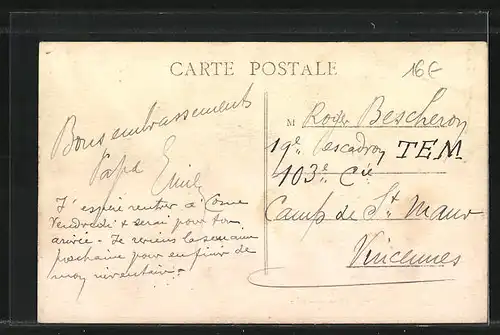 CARTE POSTALE
16€
Bons embrassements
Papa Emile
J'espère rentrer à Cosne
Vendredi & serai pour ton
arrivée - Je reviens la semaine
prochaine pour en finir de
mon inventaire.
M Roger Bescheron
19e Escadron TEM
103e Cie
Camp de St Maur
Vincennes